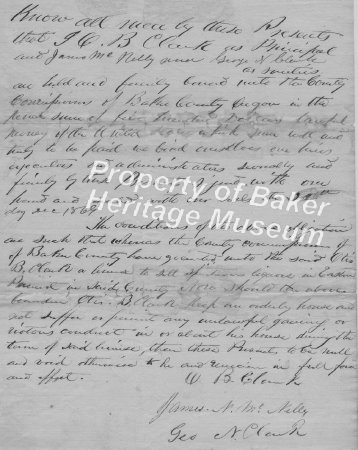 Know all men by these Presents
that I O. B Clark as Principal
and James McNelly and George N Clark
as sureties
are held and firmly bound unto the County
Commissioners of Baker County Oregon in the
penal sum of five hundred Dollars lawful
money of the United States which sum well and
truly to be paid we bind ourselves our heirs
executors and administrators severally and
firmly by these
hand and
day Dec 1869
Property of Baker
Heritage Museum
The conditions of
are such that whereas the County commissioners of
of Baker County have granted unto the said Otis
B. Clark a license to sell Spirituous liquors in
Precinct in said County Now should the above
bounden Otis B. Clark keep an orderly house and
not suffer or permit any unlawful gaming or
riotous conduct in or about his house during the
term of said license, then these Presents to be null
and void otherwise to be and remain in full force
and effect.
O B Clark
James. N. McNelly
Geo N. Clark